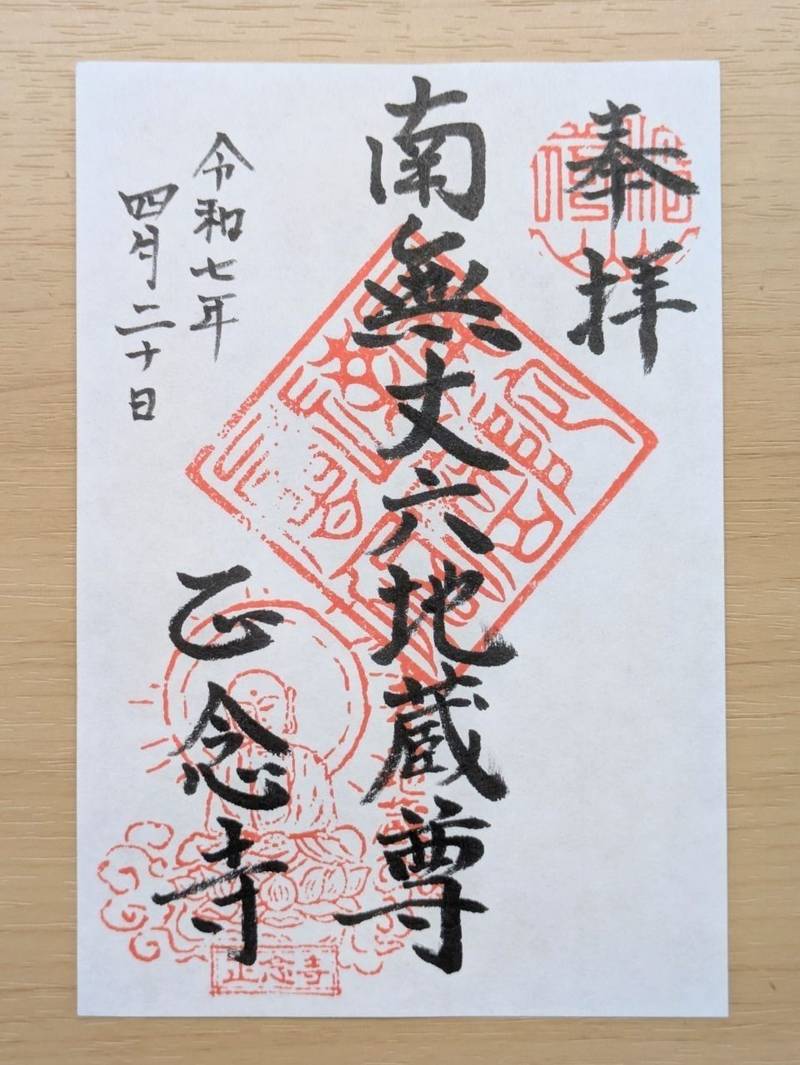 奉拝
南無丈六地蔵尊
令和七年
四月二十日
正念寺
正念寺